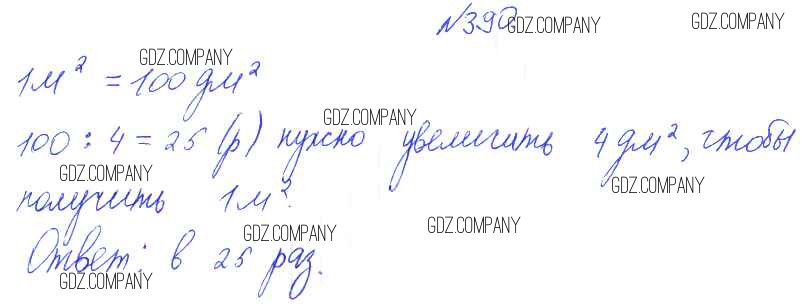 №390 GDZ.COMPANY GDZ.COMPANY
GDZ.COMPANY
1м² = 100 дм²
GDZ.COMPANY
100 : 4 = 25 (р) нужно увеличить 4 дм², чтобы
GDZ.COMPANY GDZ.COMPANY
получить 1 м².
GDZ.COMPANY GDZ.COMPANY
Ответ: в 25 раз.
GDZ.COMPANY